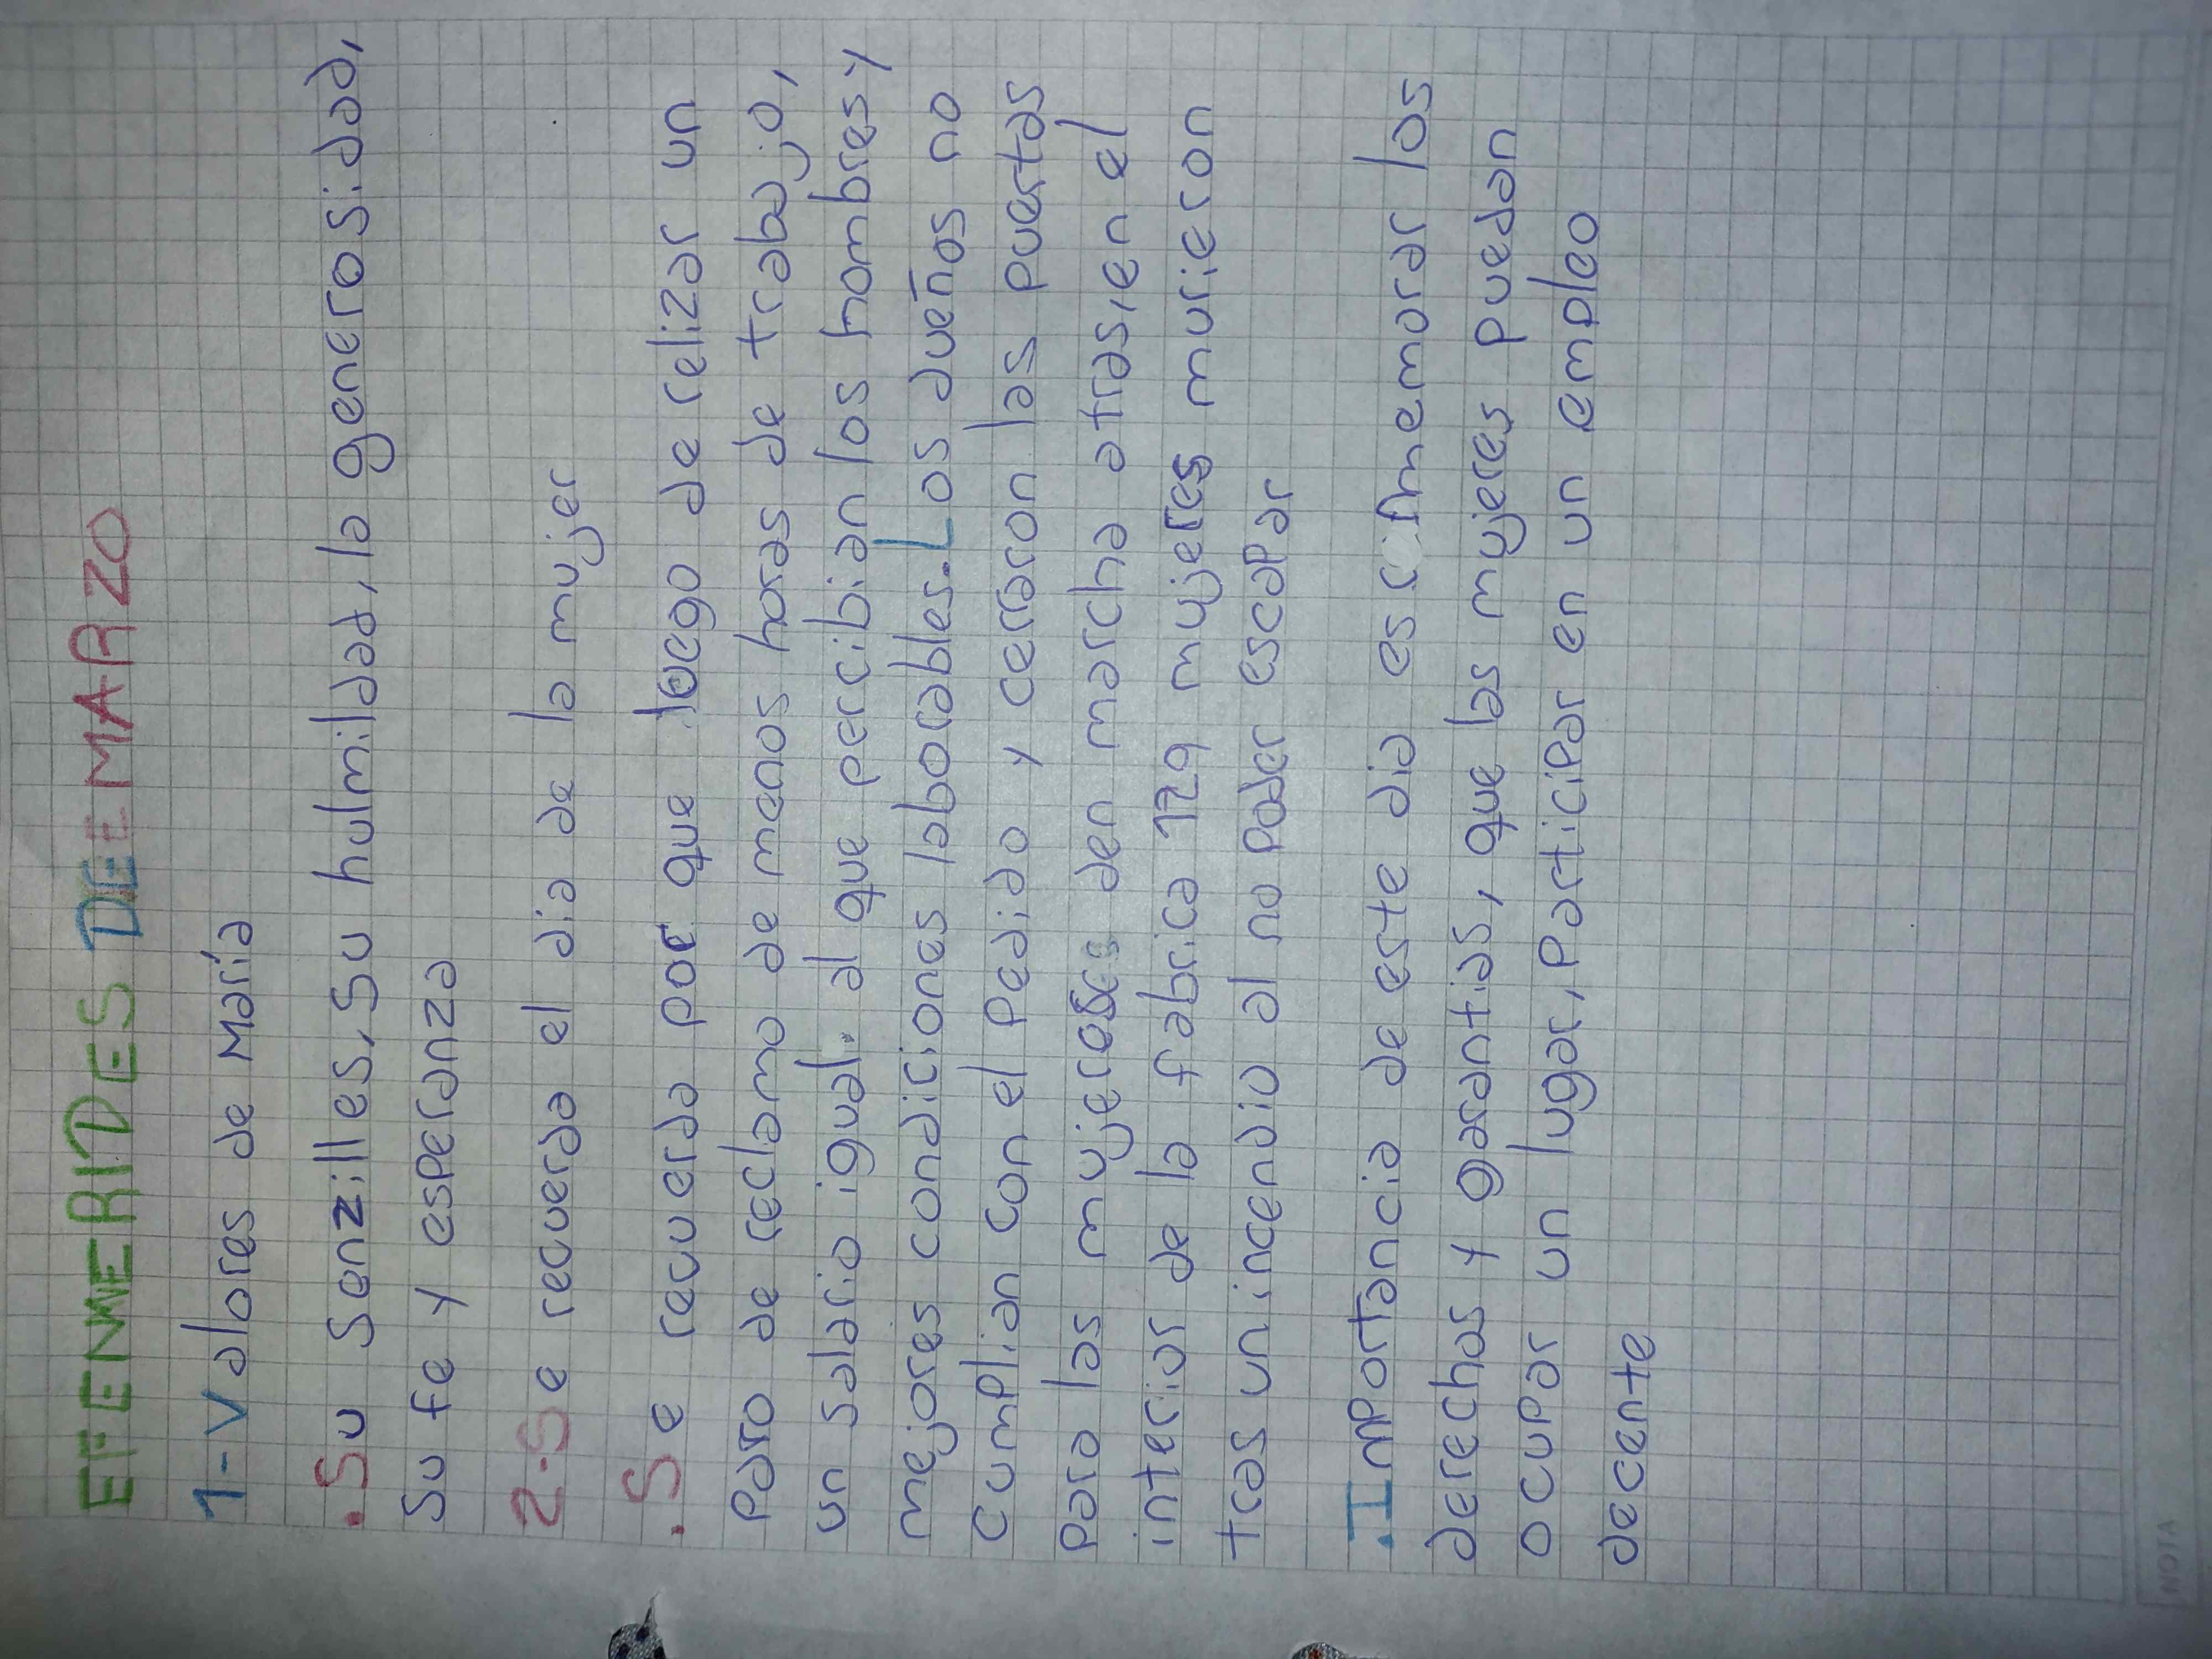 EFEMERIDES DE MARZO
1-Valores de María
.Su Senzilles, su hulmildad, la generosidad,
su fe y esperanza
2-Se recuerda el dia de la mujer
.Se recuerda por que luego de relizar un
paro de reclamo de menos horas de trabajo,
un salario igual. al que percibian los hombres y
mejores condiciones laborables. Los dueños no
cumplian con el pedido y cerraron las puertas
para las mujeres den marcha atras, en el
interior de la frabrica 129 mujeres murieron
tras un incendio al no poder escapar
.Importancia de este dia es conmemorar los
derechos y garantias, que las mujeres puedan
ocupar un lugar, participar en un empleo
decente
NOTA